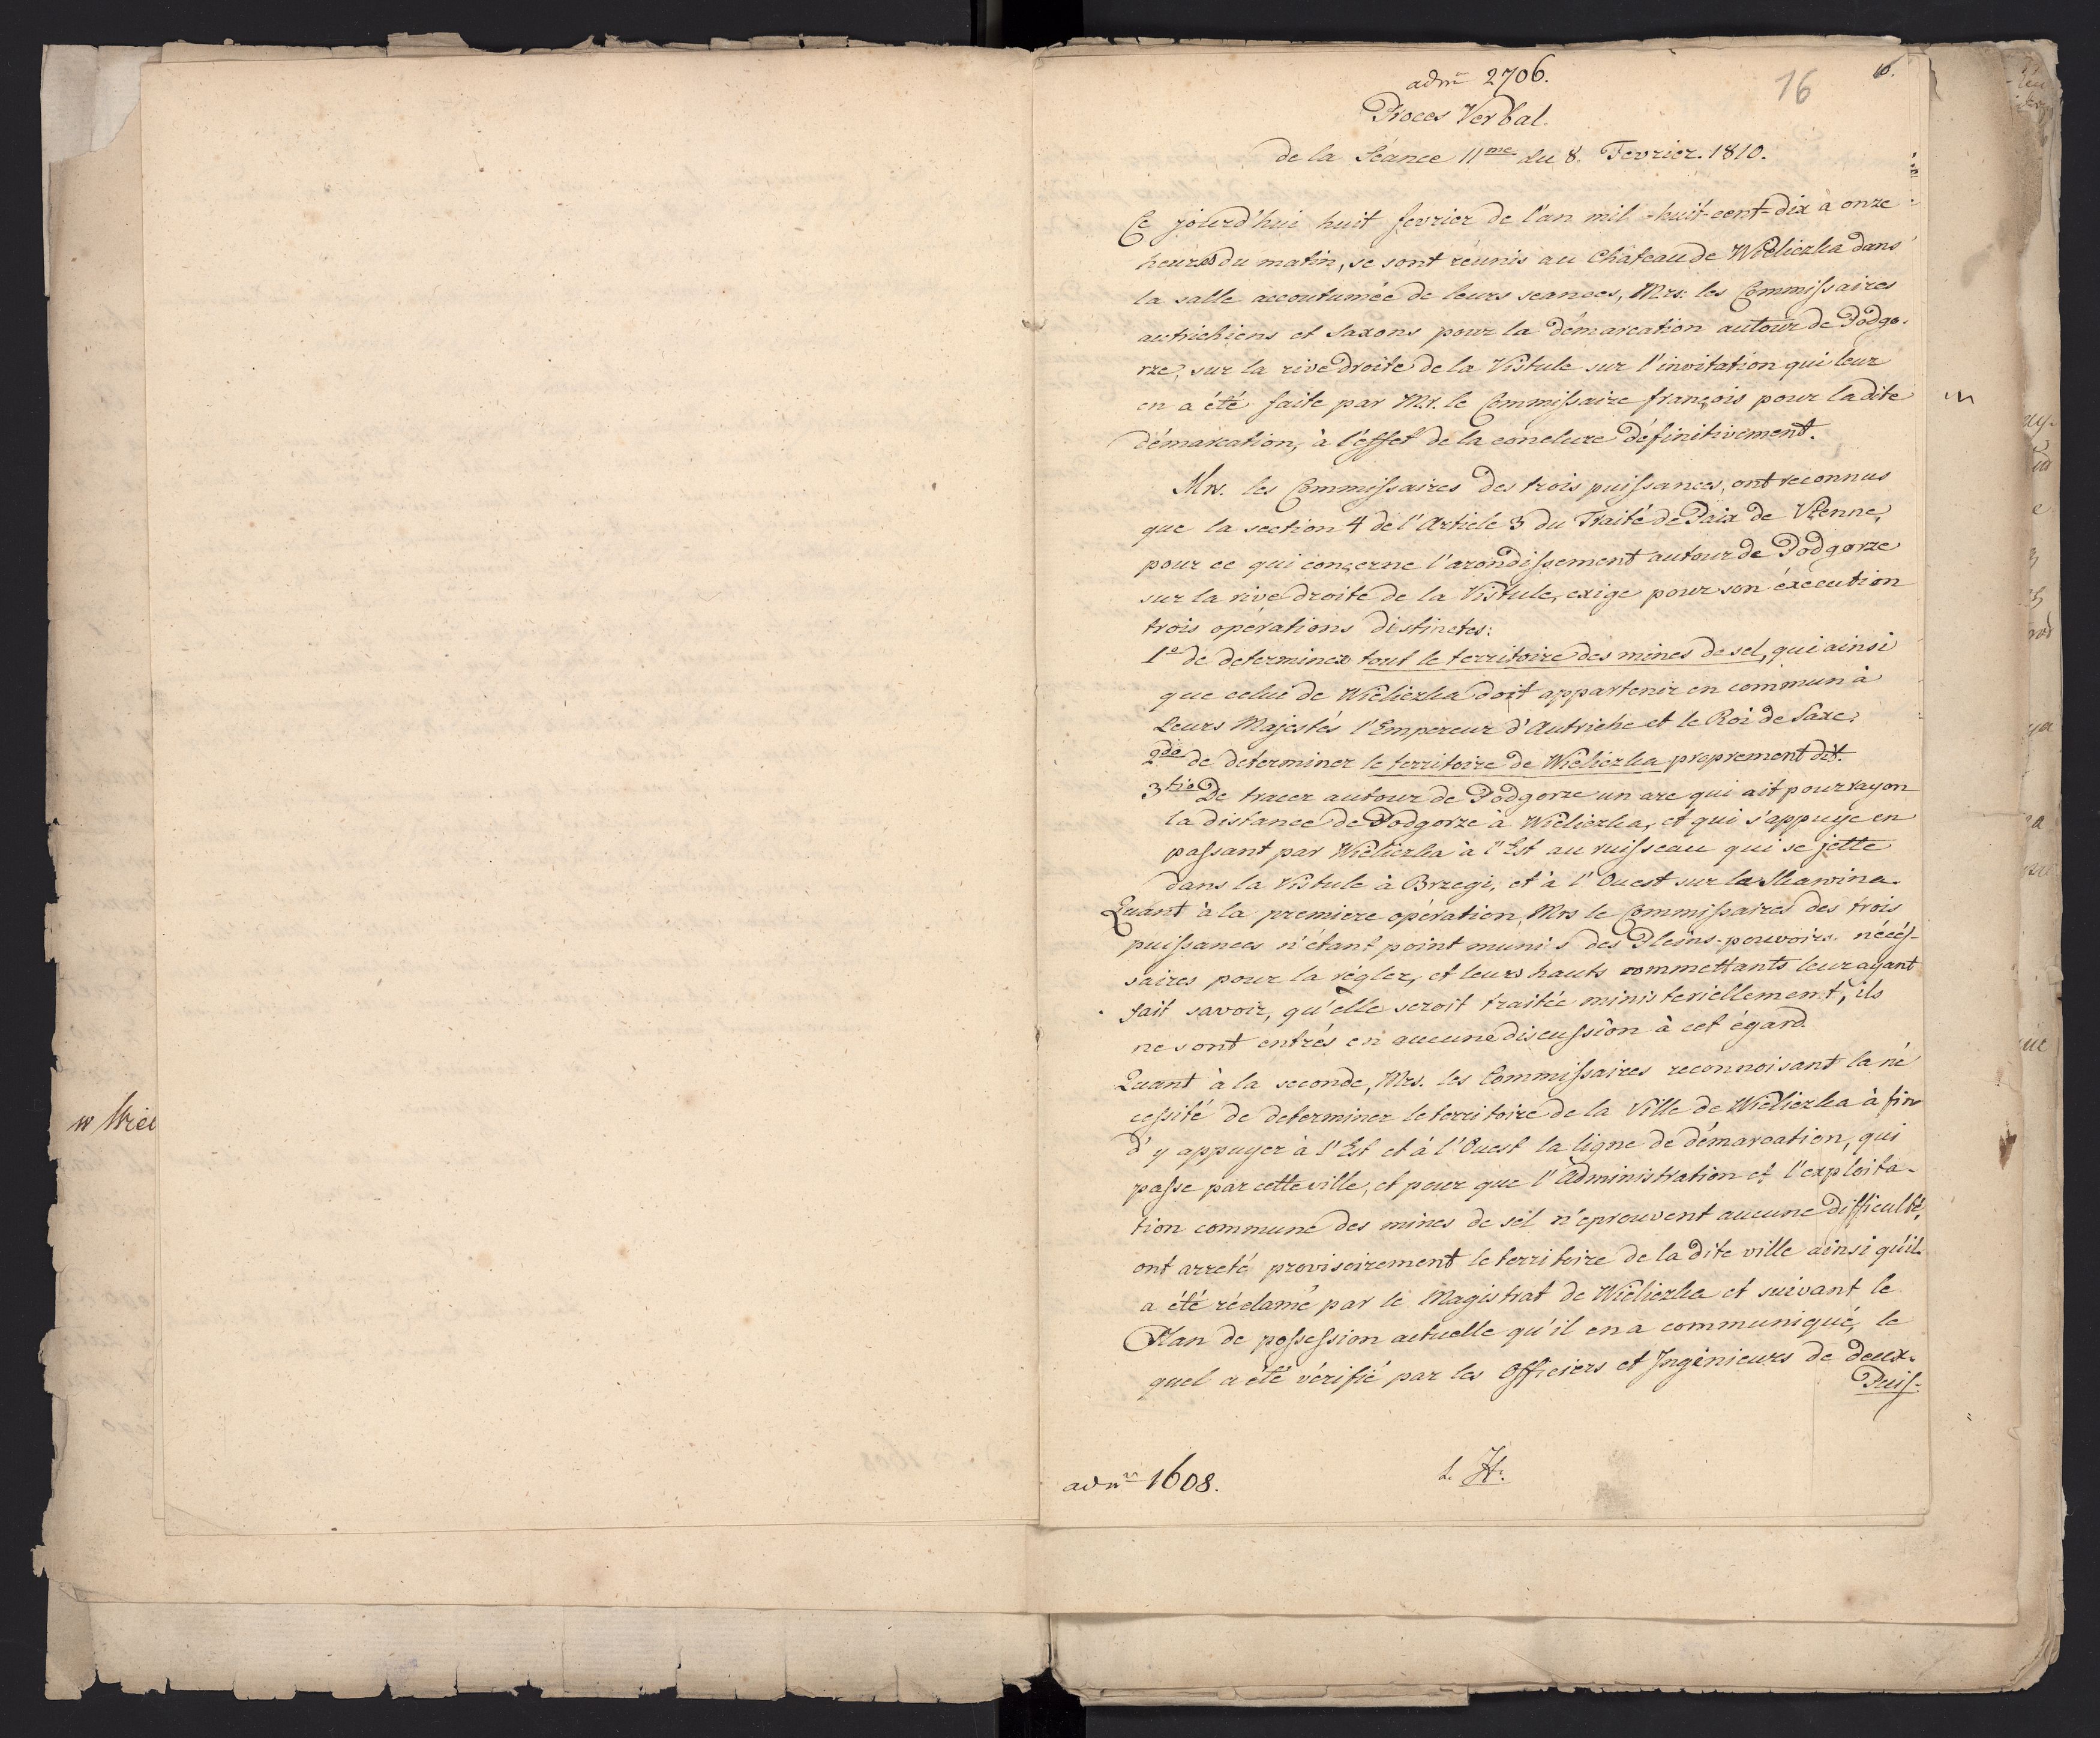 adnr 2706.
16
10.
Proces Verbal.
de la Séance 11me du 8. Fevrier. 1810.
Ce jourd'hui huit fevrier de l'an mil-huit-cent-dix à onze
heures du matin, se sont réunis au Château de Wieliczka dans
la salle accoutumée de leurs seances, Mrs. les Commissaires
autrichiens et Saxons pour la démarcation autour de Podgo-
rze, sur la rive droite de la Vistule sur l'invitation qui leur
en a été faite par Mr. le Commissaire françois pour la dite
démarcation, à l'effet de la conclure définitivement.
Mrs. les Commissaires des trois puissances, ont reconnus
que la section 4 de l'Article 3 du Traité de Paix de Vienne,
pour ce qui conçerne l'arondissement autour de Podgorze
sur la rive droite de la Vistule, exige pour son éxecution
trois opérations distinctes:
1o de determiner tout le territoire des mines de sel, qui ainsi
que celui de Wieliczka doit appartenir en commun à
Leurs Majestés l'Empereur d'Autriche et le Roi de Saxe.
2do de determiner le territoire de Wieliczka proprement dit.
3tio De tracer autour de Podgorze un arc qui ait pour rayon
la distance de Podgorze à Wieliczka, et qui s'appuye en
passant par Wieliczka à l'Est au ruisseau qui se jette
dans la Vistule à Brzegi, et à l'Ouest sur la Skawina.
Quant à la premiere opération, Mrs le Commissaires des trois
puissances n'étant point munis des Pleins-pouvoirs néces-
saires pour la régler, et leurs hauts commettants leur ayant
fait savoir, qu'elle seroit traitée ministeriellement, ils
ne sont entrés en aucune discussion à cet égard.
Quant à la seconde, Mrs. les Commissaires reconnoisant la né
cessité de determiner le territoire de la Ville de Wieliczka à fin
d'y appuyer à l'Est et à l'Ouest la ligne de démarcation, qui
passe par cette ville, et pour que l'Administration et l'exploita-
tion commune des mines de sel n'eprouvent aucune difficulté,
ont arreté provisoirement le territoire de la dite ville ainsi qu'il
a été réclamé par le Magistrat de Wieliczka et suivant le
Plan de possession actuelle qu'il en a communiqué, le
quel a été vérifié par les Officiers et Ingénieurs de deux
Puis-
w Wiel
adnr 1608.
L. H.